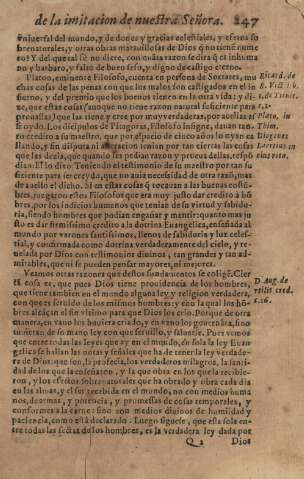 de la imitacion de nuestra Señora. 247
vniuersal del mundo, y de dones y gracias celestiales, y efetos so
brenaturales, y otras obras marauillosas de Dios q̃ no tiene nume
ro? Y del que tal se no diere, con mucha razon se dira q̃ es inhuma
no y barbaro, y falto de buen seso, y digno de castigo eterno.
Platon, eminente Filosofo, cuenta en persona de Socrates, mu
chas cosas de las penas con que los malos son castigados en el in
fierno, y del premio que los buenos tienen en la otra vida; y dize,
que estas cosas (aunque no tiene razon natural suficiente para
prouallas) que las tiene y cree por muy verdaderas, por auellas as
si oydo. Los discipulos de Pitagoras, Filosofo insigne, dauan tan
ro credito a su maestro, que por espacio de cinco años lo oyan ca
llando, y sin disputa ni alteracion tenian por tan ciertas las cosas
que les dezia, que quando les pedian razon y prueua dellas, respõ
dian: El lo dixo. Teniendo el testimonio de su maestro por tan su
ficiente para ser creyda, que no auia necesidad de otra razõ, mas
de auello el dicho. Si en estas cosas q̃ tocauan a las buenas costũ
bres, juzgaron estos Filosofos que era muy justo dar credito a hõ
bres, por los indicios humanos que tenian de su virtud y sabidu-
ria, siendo hombres que podian engañar y mentir: quanto mas ju
sto es dar firmissimo credito a la doctrina Euangelica, enseñada al
mundo por varones santissimos, llenos de sabiduria y luz celes-
tial, y confirmada como dotrina verdaderamente del cielo, y re-
uelada por Dios con testimonios diuinos, tan grandes y tan ad-
mirables, que ni se pueden pensar mayores, ni mejores.
Veamos otras razones que destos fundamentos se coligẽ. Cier
ta cosa es, que pues Dios tiene prouidencia de los hombres,
que tiene tambien en el mundo alguna ley y religion verdadera,
con que es seruido de los mismos hombres, y con la qual los hõ-
bres alcançan el fin vltimo para que Dios los crio. Porque de otra
manera, en vano los huuiera criado, y en vano los gouernára, sino
tuuieran de su mano ley con que seruille, y saluarse. Pues vemos
que entre todas las leyes que ay en el mundo, en sola la ley Euan
gelica se hallan las notas y señales que ha de tener la ley verdade-
ra de Dios: que son, la profecia, los verdaderos milagros, la santi-
dad de los que la enseñaron, y la que obra en los que la recibie-
ron, y los efectos sobrenaturales que ha obrado y obra cada dia
en las almas, y el ser recebida en el mundo, no con medios huma
nos, de armas, y potencia, y promessas de cosas temporales, y
conformes a la carne: sino con medios diuinos de humildad y
paciencia, como está declarado. Luego siguese, que esta sola en-
tre todas las sectas de los hombres, es la verdadera ley dada por
Q 2 Dios
Platõ, in
Diogenes
Laertius in
eius vita.
D. Aug. de